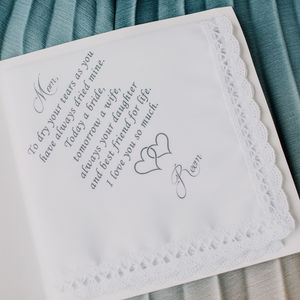 Mom,
To dry your tears as you
have always dried mine.
Today a bride,
tomorrow a wife,
always your daughter
and best friend for life.
I love you so much.